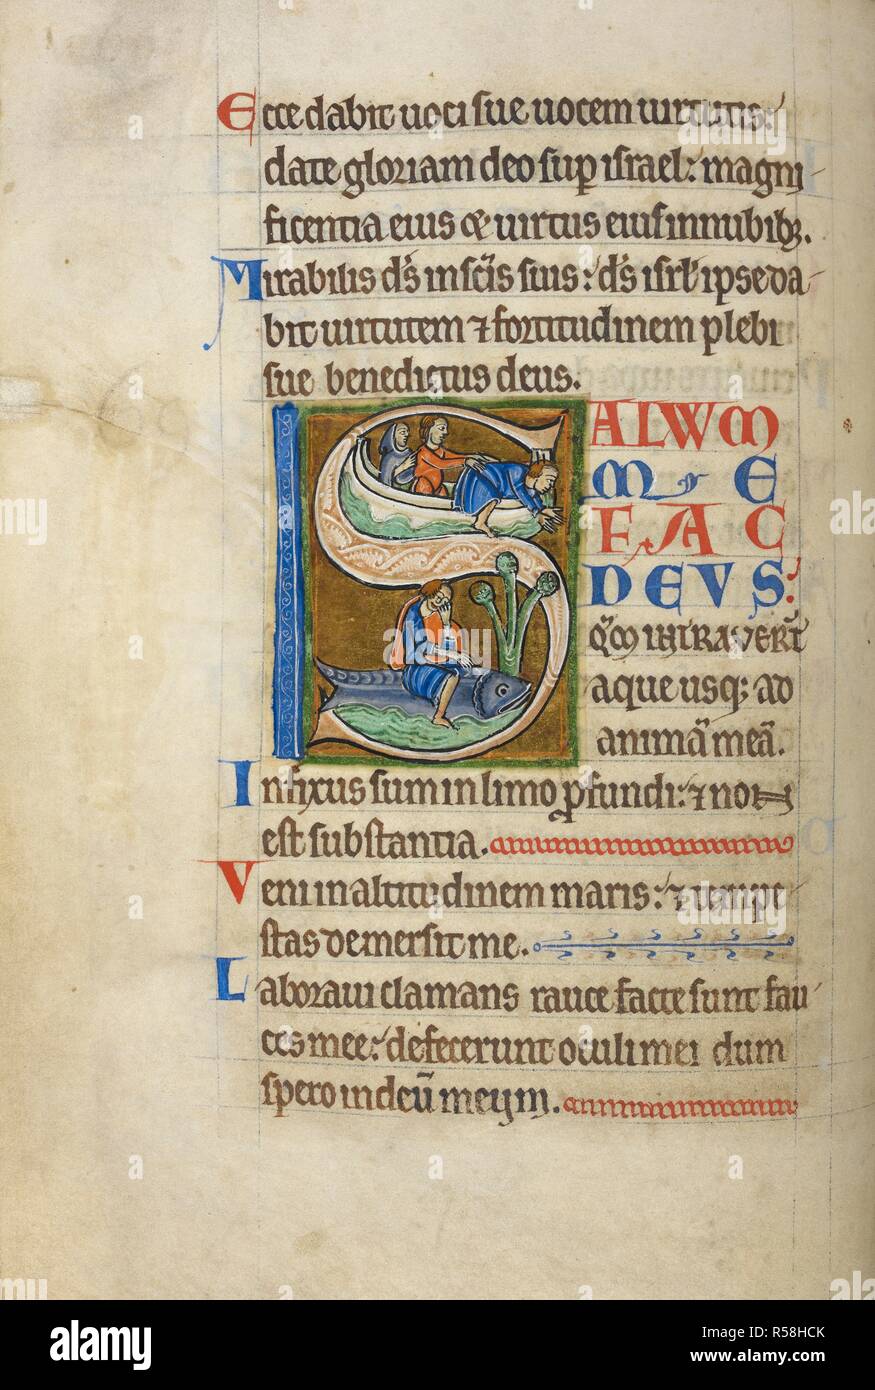 Ecce dabit uoci sue uocem uirtutis:
date gloriam deo sup israel: magni
ficentia eius & uirtus eius in nubibȝ.
Mirabilis d̄s in sc̄is suis: d̄s isrl̄ ipse da
bit uirtutem ⁊ fortitudinem plebi
sue benedictus deus.
SALWM
M E
FAC
DEVS:
qm̄ intrauert̄
aque usqȝ ad
animā meā.
Infixus sum in limo ꝓfundi: ⁊ non
est substantia.
Veni in altitudinem maris: ⁊ tempe
stas demersit me.
Laboraui clamans rauce facte sunt fau
ces mee: defecerunt oculi mei dum
spero in deū meum.
alamy
Image ID: R58HCK
www.alamy.com